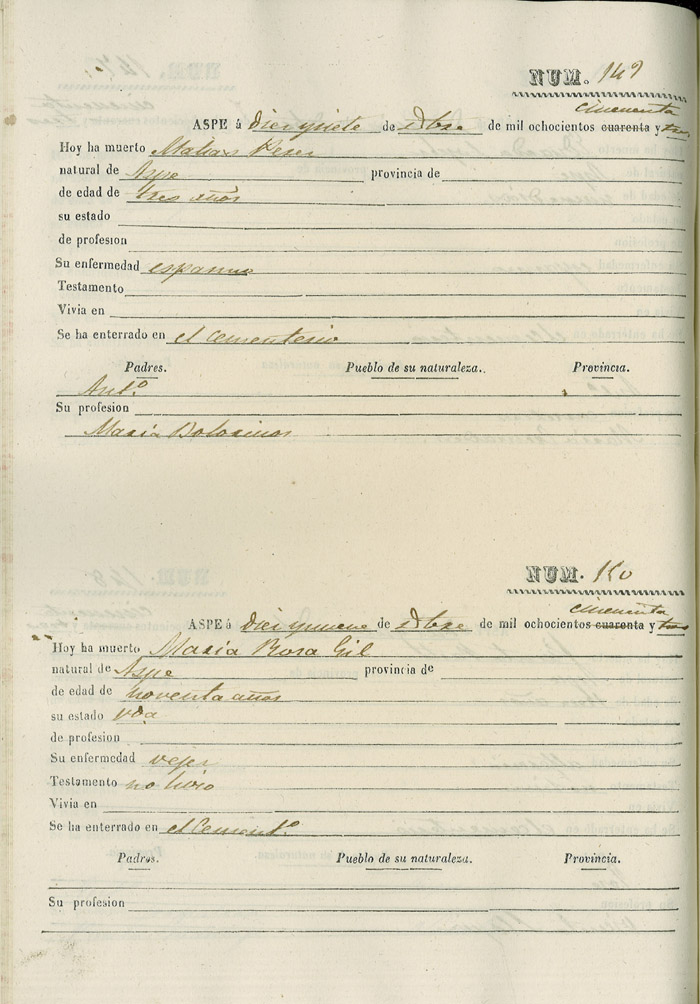 NUM. 149
cincuenta
ASPE á Diez y siete de Dbre de mil ochocientos cuarenta y tres
Hoy ha muerto Matias Perez
natural de Aspe provincia de
de edad de tres años
su estado
de profesion
Su enfermedad espasmo
Testamento
Vivia en
Se ha enterrado en el Cementerio
Padres. Pueblo de su naturaleza. Provincia.
Antº
Su profesion
Maria Botorinos
NUM. 150
cincuenta
ASPE á Diez y nueve de Dbre de mil ochocientos cuarenta y tres
Hoy ha muerto Maria Rosa Gil
natural de Aspe provincia de
de edad de noventa años
su estado vda
de profesion
Su enfermedad vejez
Testamento no hizo
Vivia en
Se ha enterrado en el Cementº
Padres. Pueblo de su naturaleza. Provincia.
Su profesion